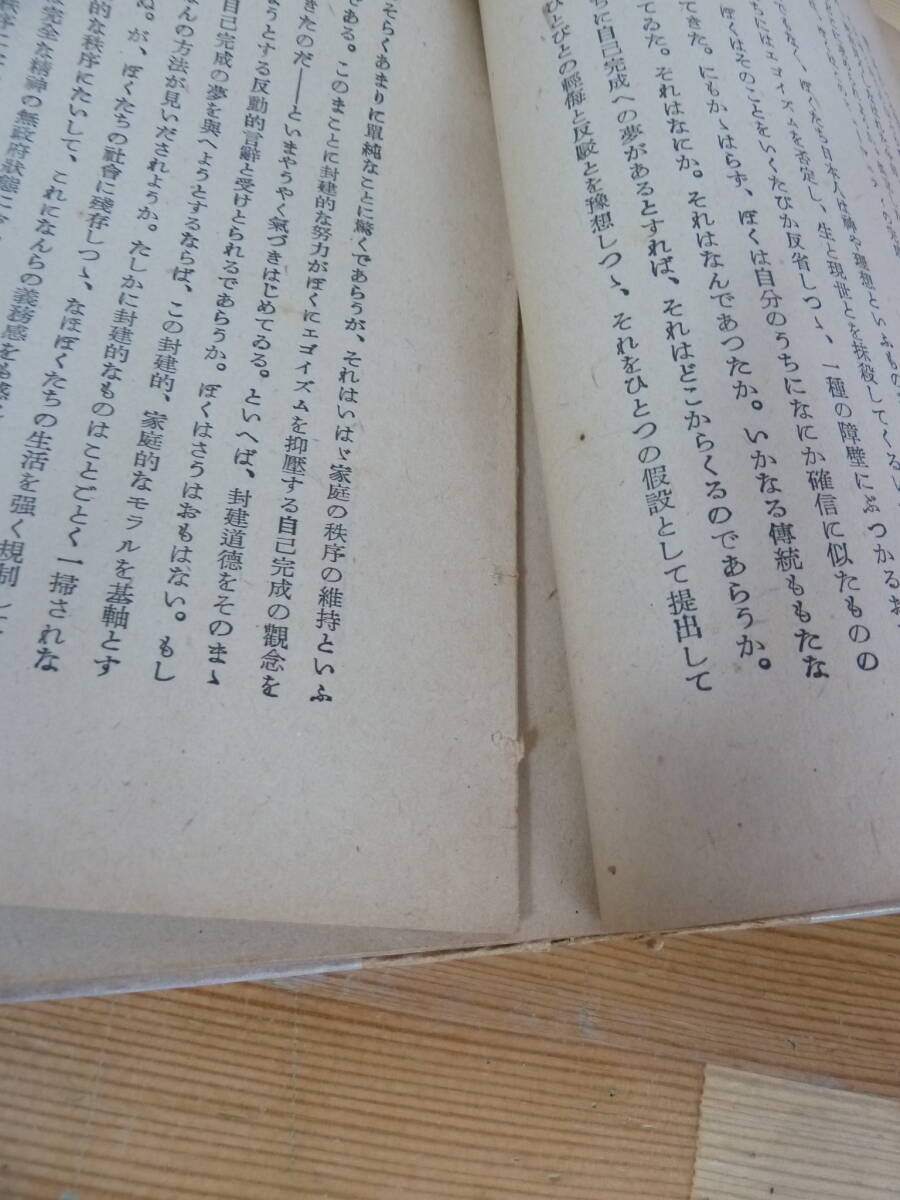 でもなく、ぼくたち日本人は神や理想といふもの
ちにはエゴイズムを否定し、生と現世とを抹殺してくる
ぼくはそのことをいくたびか反省しつゝ、一種の障壁にぶつかるお
てきた。にもかゝはらず、ぼくは自分のうちになにか確信に似たものの
てゐた。それはなにか。それはなんであつたか。いかなる傳統ももたな
ちに自己完成への夢があるとすれば、それはどこからくるのであらうか。
ひとびとの輕侮と反駁とを豫想しつゝ、それをひとつの假設として提出して
そらくあまりに單純なことに驚くであらうが、それはいはゞ家庭の秩序の維持といふ
である。このまことに封建的な努力がぼくにエゴイズムを抑壓する自己完成の觀念を
きたのだ――といまやうやく氣づきはじめてゐる。といへば、封建道德をそのまゝ
ようとする反動的言辭と受けとられるであらうか。ぼくはさうはおもはない。もし
自己完成の夢を與へようとするならば、この封建的、家庭的なモラルを基軸とす
なんの方法が見いだされようか。たしかに封建的なものはことごとく一掃されな
ぬ。が、ぼくたちの社會に殘存しつゝ、なほぼくたちの生活を强く規制して
的な秩序にたいして、これになんらの義務感をも感
な完全な精神の無政府狀態に